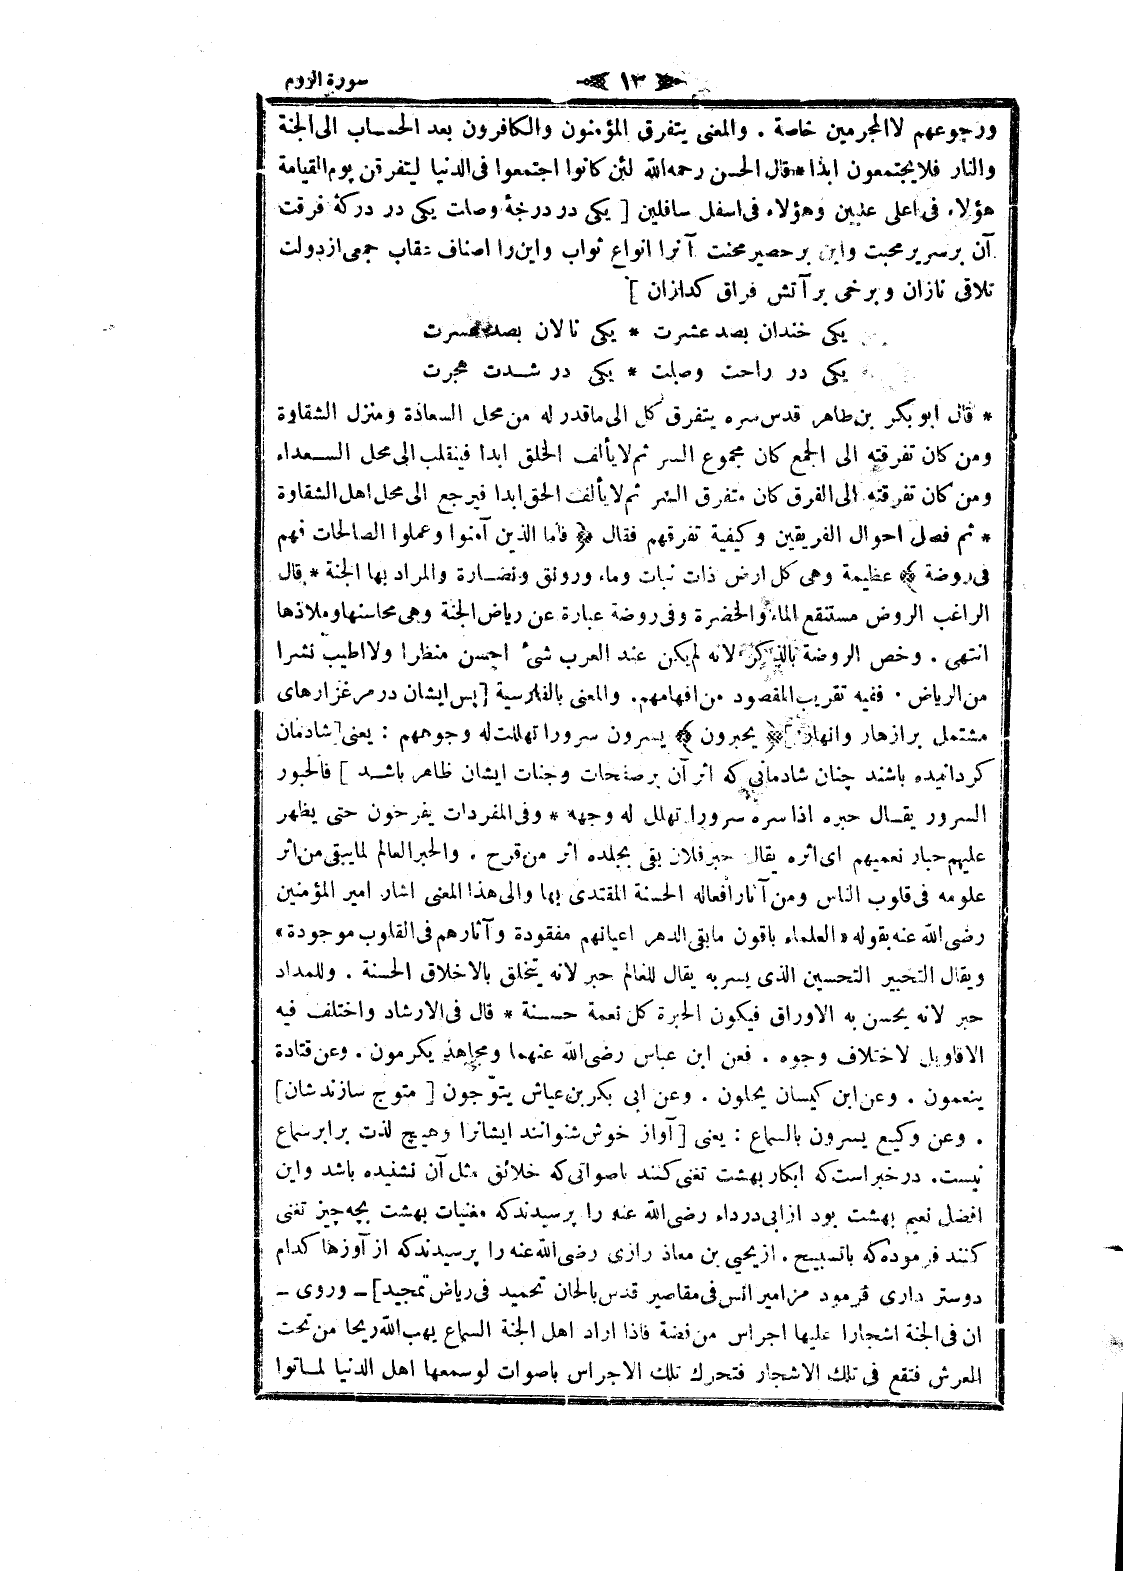 سورة الروم
١٣
ورجوعهم لا المجرمين خاصة . والمعنى يتفرق المؤمنون والكافرون بعد الحساب الى الجنة
والنار فلا يجتمعون ابدا * قال الحسن رحمه الله لئن كانوا اجتمعوا فى الدنيا ليتفرقن يوم القيامة
هؤلاء فى اعلى عليين وهؤلاء فى اسفل سافلين [ يكى در درجۀ وصلت يكى در دركۀ فرقت
آن بر سرير محبت واين بر حصير محنت آنرا انواع ثواب واين را اصناف عقاب جمعى از دولت
تلاقى نازان وبرخى بر آتش فراق كدازان ]
يكى خندان بصد عشرت * يكى نالان بصد حسرت
يكى در راحت وصلت * يكى در شدت هجرت
* قال ابو بكر بن طاهر قدس سره يتفرق كل الى ماقدر له من محل السعادة ومنزل الشقاوة
ومن كان تفرقته الى الجمع كان مجموع السر ثم لا يألف الخلق ابدا فينقلب الى محل السعداء
ومن كان تفرقته الى الفرق كان متفرق السر ثم لا يألف الحق ابدا فيرجع الى محل اهل الشقاوة
* ثم فصل احوال الفريقين وكيفية تفرقهم فقال ﴿ فاما الذين آمنوا وعملوا الصالحات فهم
فى روضة ﴾ عظيمة وهى كل ارض ذات نبات وماء ورونق ونضارة والمراد بها الجنة * قال
الراغب الروض مستنقع الماء والخضرة وفى روضة عبارة عن رياض الجنة وهى محاسنها وملاذها
انتهى . وخص الروضة بالذكر لانه لم يكن عند العرب شئ احسن منظرا ولا اطيب نشرا
من الرياض . ففيه تقريب المقصود من افهامهم . والمعنى بالفارسية [ پس ايشان در مرغزارهاى
مشتمل بر ازهار وانهار ] ﴿ يحبرون ﴾ يسرون سرورا تهللت له وجوههم : يعنى [ شادمان
كردانيده باشند چنان شادمانى كه اثر آن بر صفحات وجنات ايشان ظاهر باشد ] فالحبور
السرور يقال حبره اذا سره سرورا تهلل له وجهه * وفى المفردات يفرحون حتى يظهر
عليهم حبار نعيمهم اى اثره يقال حبر فلان بقى بجلده اثر من قرح . والحبر العالم لما يبقى من اثر
علومه فى قلوب الناس ومن آثار افعاله الحسنة المقتدى بها والى هذا المعنى اشار امير المؤمنين
رضى الله عنه بقوله « العلماء باقون مابقى الدهر اعيانهم مفقودة وآثارهم فى القلوب موجودة »
ويقال التحبير التحسين الذى يسر به يقال للعالم حبر لانه يتخلق بالاخلاق الحسنة . وللمداد
حبر لانه يحسن به الاوراق فيكون الحبرة كل نعمة حسنة * قال فى الارشاد واختلف فيه
الاقاويل لاختلاف وجوه . فعن ابن عباس رضى الله عنهما ومجاهد يكرمون . وعن قتادة
ينعمون . وعن ابن كيسان يحلون . وعن ابى بكر بن عياش يتوّجون [ متوج سازندشان ]
. وعن وكيع يسرون بالسماع : يعنى [ آواز خوش شنوانند ايشانرا وهيچ لذت برابر سماع
نيست . در خبر است كه ابكار بهشت تغنى كنند باصواتى كه خلائق مثل آن نشنيده باشد واين
افضل نعيم بهشت بود از ابى درداء رضى الله عنه را پرسيدند كه مغنيات بهشت بچه چيز تغنى
كنند فرموده كه بالتسبيح . از يحيى بن معاذ رازى رضى الله عنه را پرسيدند كه از آوزها كدام
دوستر دارى فرمود مزامير انس فى مقاصير قدس بالحان تحميد فى رياض تمجيد ] ـ وروى ـ
ان فى الجنة اشجارا عليها اجراس من فضة فاذا اراد اهل الجنة السماع يهب الله ريحا من تحت
العرش فتقع فى تلك الاشجار فتحرك تلك الاجراس باصوات لو سمعها اهل الدنيا لماتوا